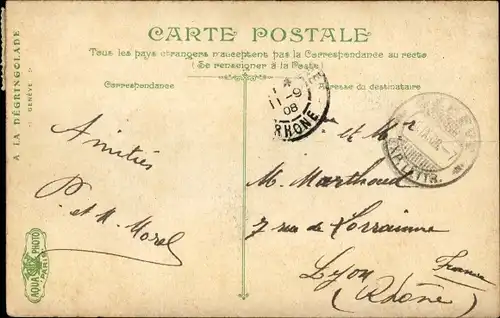 CARTE POSTALE
Tous les pays étrangers n'acceptent pas la Correspondance au recto
(Se renseigner à la Poste)
Correspondance
Adresse du destinataire
A LA DÉGRINGOLADE
GENÈVE
11-9
08
RHONE
EXP. LETTR.
Amitiés
P. et M. Morel
et Mr
M. Marthoud
7 rue de Lorraine
Lyon France
(Rhône)
AQUA PHOTO
PARIS